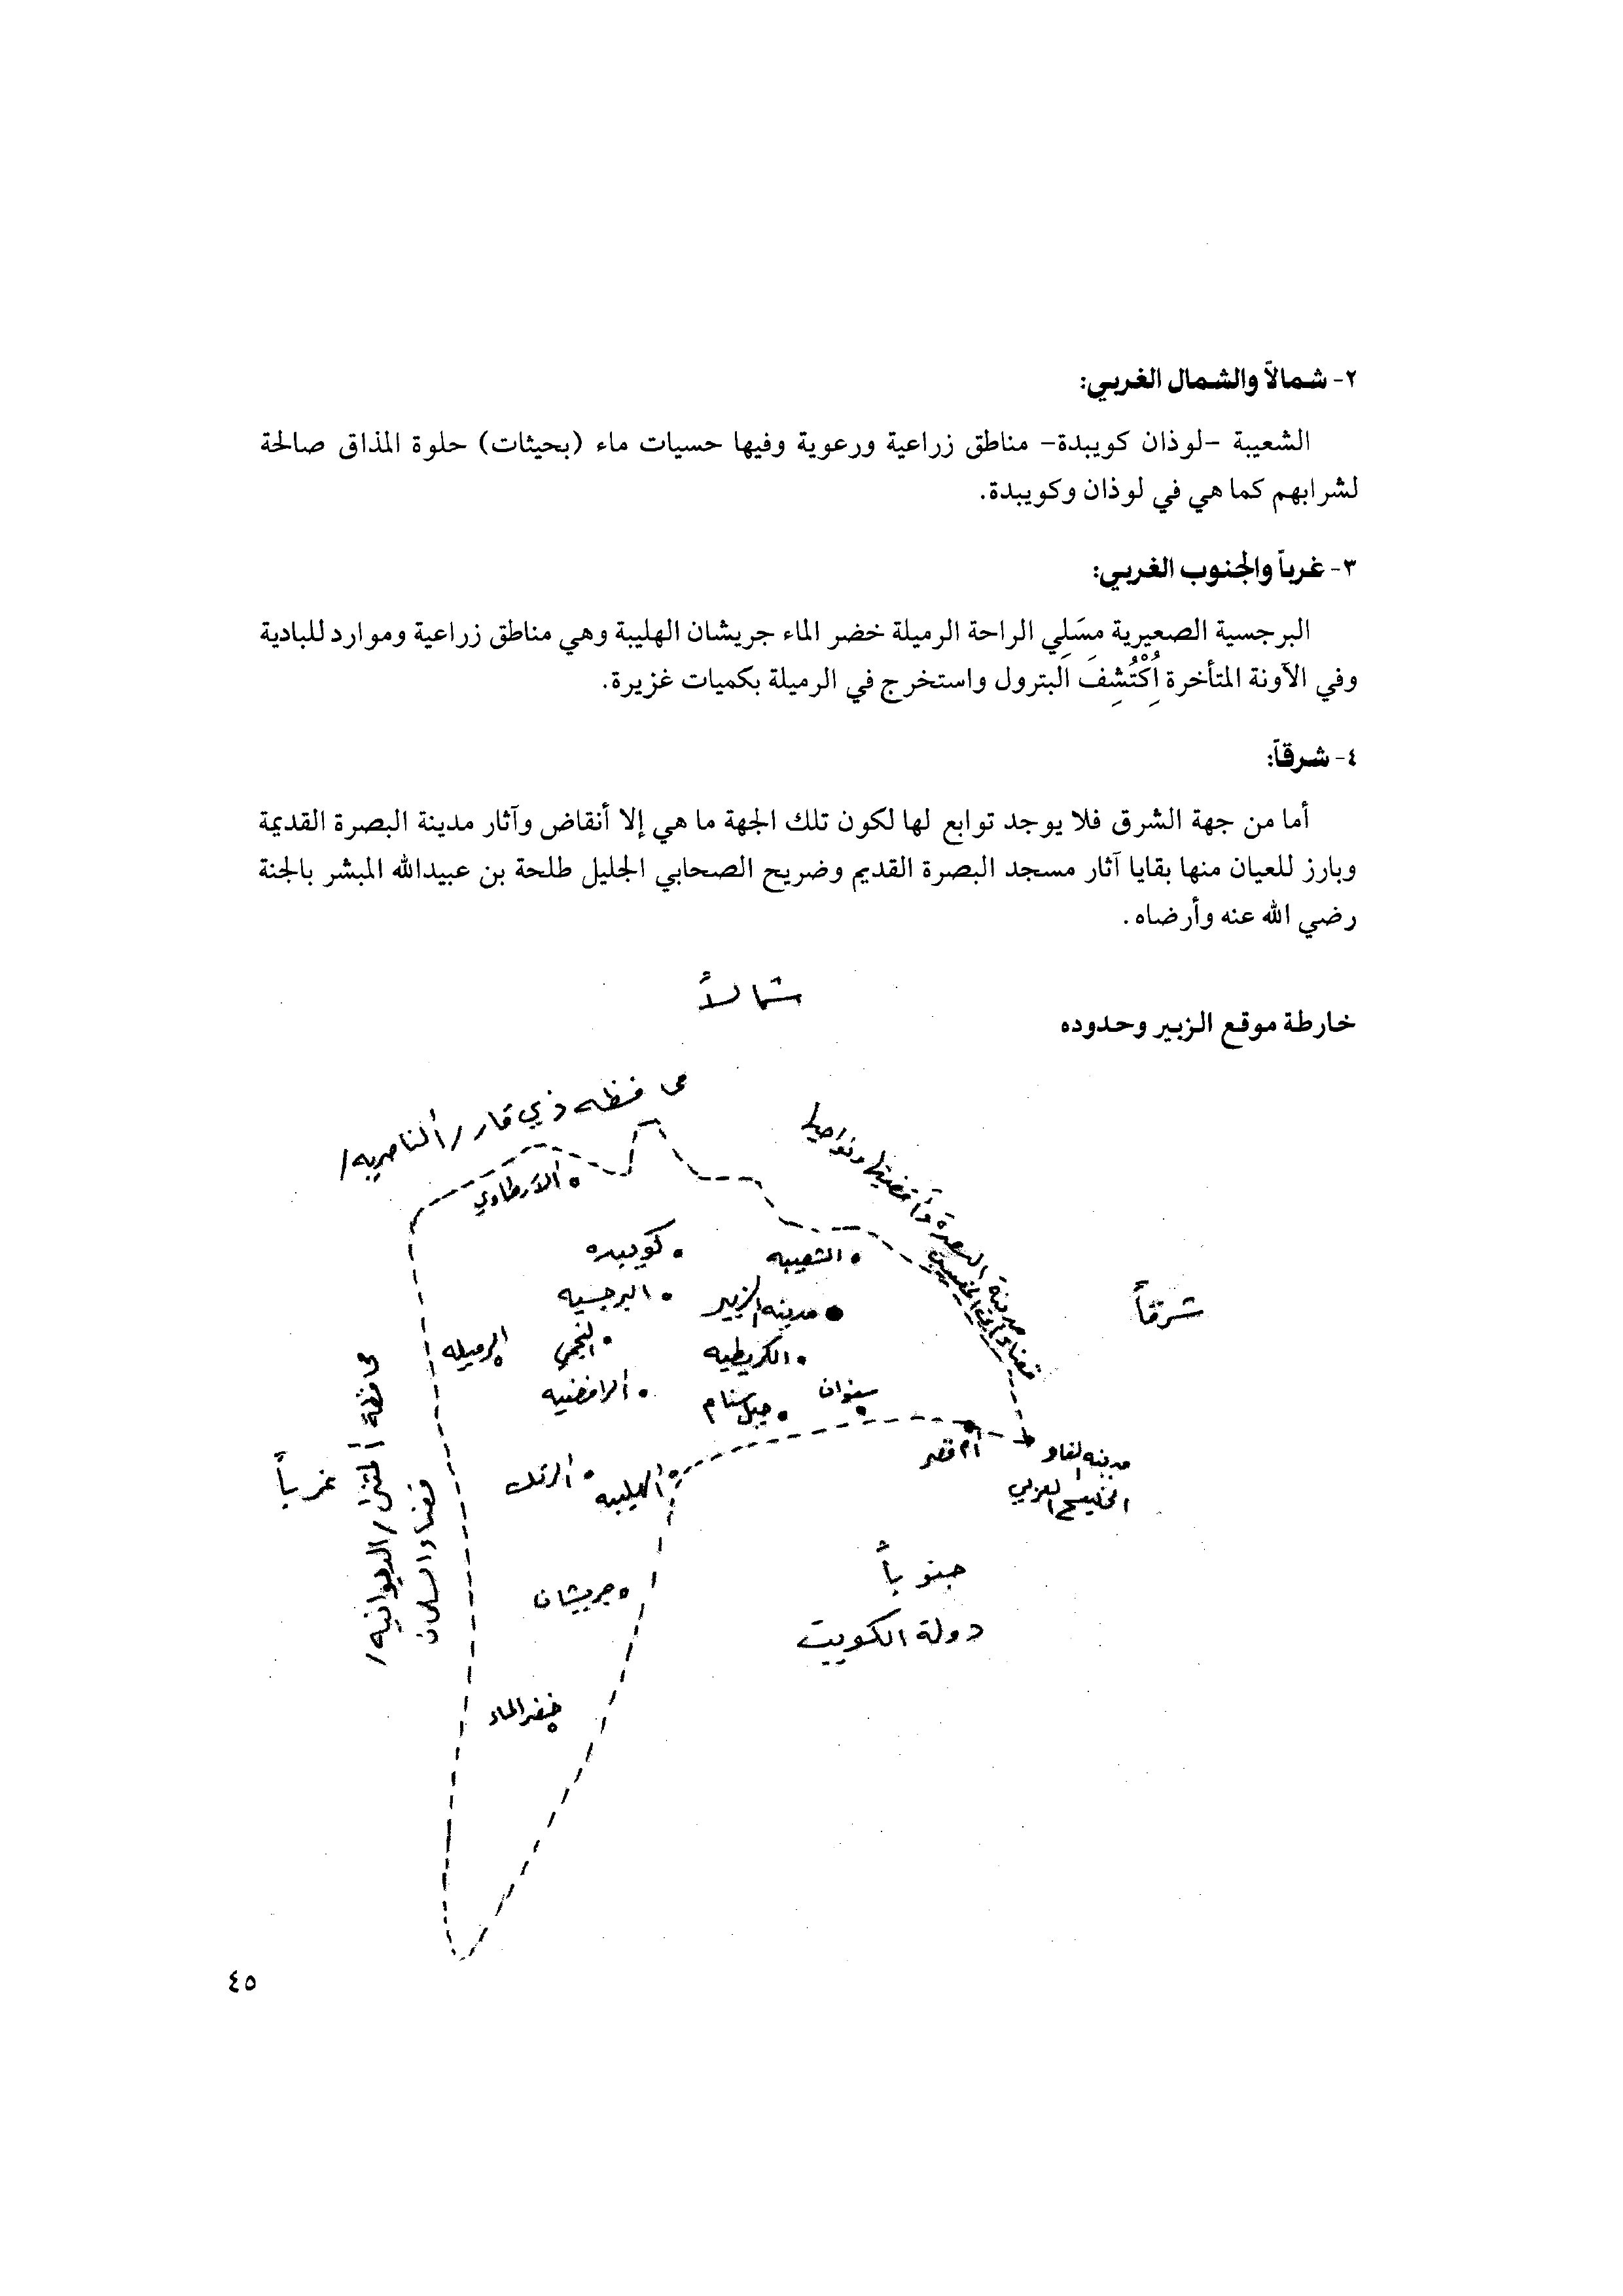 ٢- شمالاً والشمال الغربي:
الشعيبة -لوذان كويبدة- مناطق زراعية ورعوية وفيها حسيات ماء (بحيثات) حلوة المذاق صالحة
لشرابهم كما هي في لوذان وكويبدة.
٣- غرباً والجنوب الغربي:
البرجسية الصعيرية مسَلِي الراحة الرميلة خضر الماء جريشان الهليبة وهي مناطق زراعية وموارد للبادية
وفي الآونة المتأخرة اُكْتُشِفَ البترول واستخرج في الرميلة بكميات غزيرة.
٤- شرقاً:
أما من جهة الشرق فلا يوجد توابع لها لكون تلك الجهة ما هي إلا أنقاض وآثار مدينة البصرة القديمة
وبارز للعيان منها بقايا آثار مسجد البصرة القديم وضريح الصحابي الجليل طلحة بن عبيدالله المبشر بالجنة
رضي الله عنه وأرضاه.
شمالاً
خارطة موقع الزبير وحدوده
محافظه ذي قار /الناصريه/
مدينة البصرة وأقضيتها ونواحيها
قضاء أبي الخصيب
الأرطاوي
كويبده
الشعيبه
البرجسيه
مدينه الزبير
شرقاً
الرميله
النجمي
الكريطيه
الرافضيه
جبل سنام
سفوان
أم قصر
مدينه الفاو
الخليج العربي
غرباً
محافظة المثنى /الديوانيه/
قضاء السلمان
الهليبه
جنوباً
دولة الكويت
جريشان
خضر الماء
٤٥